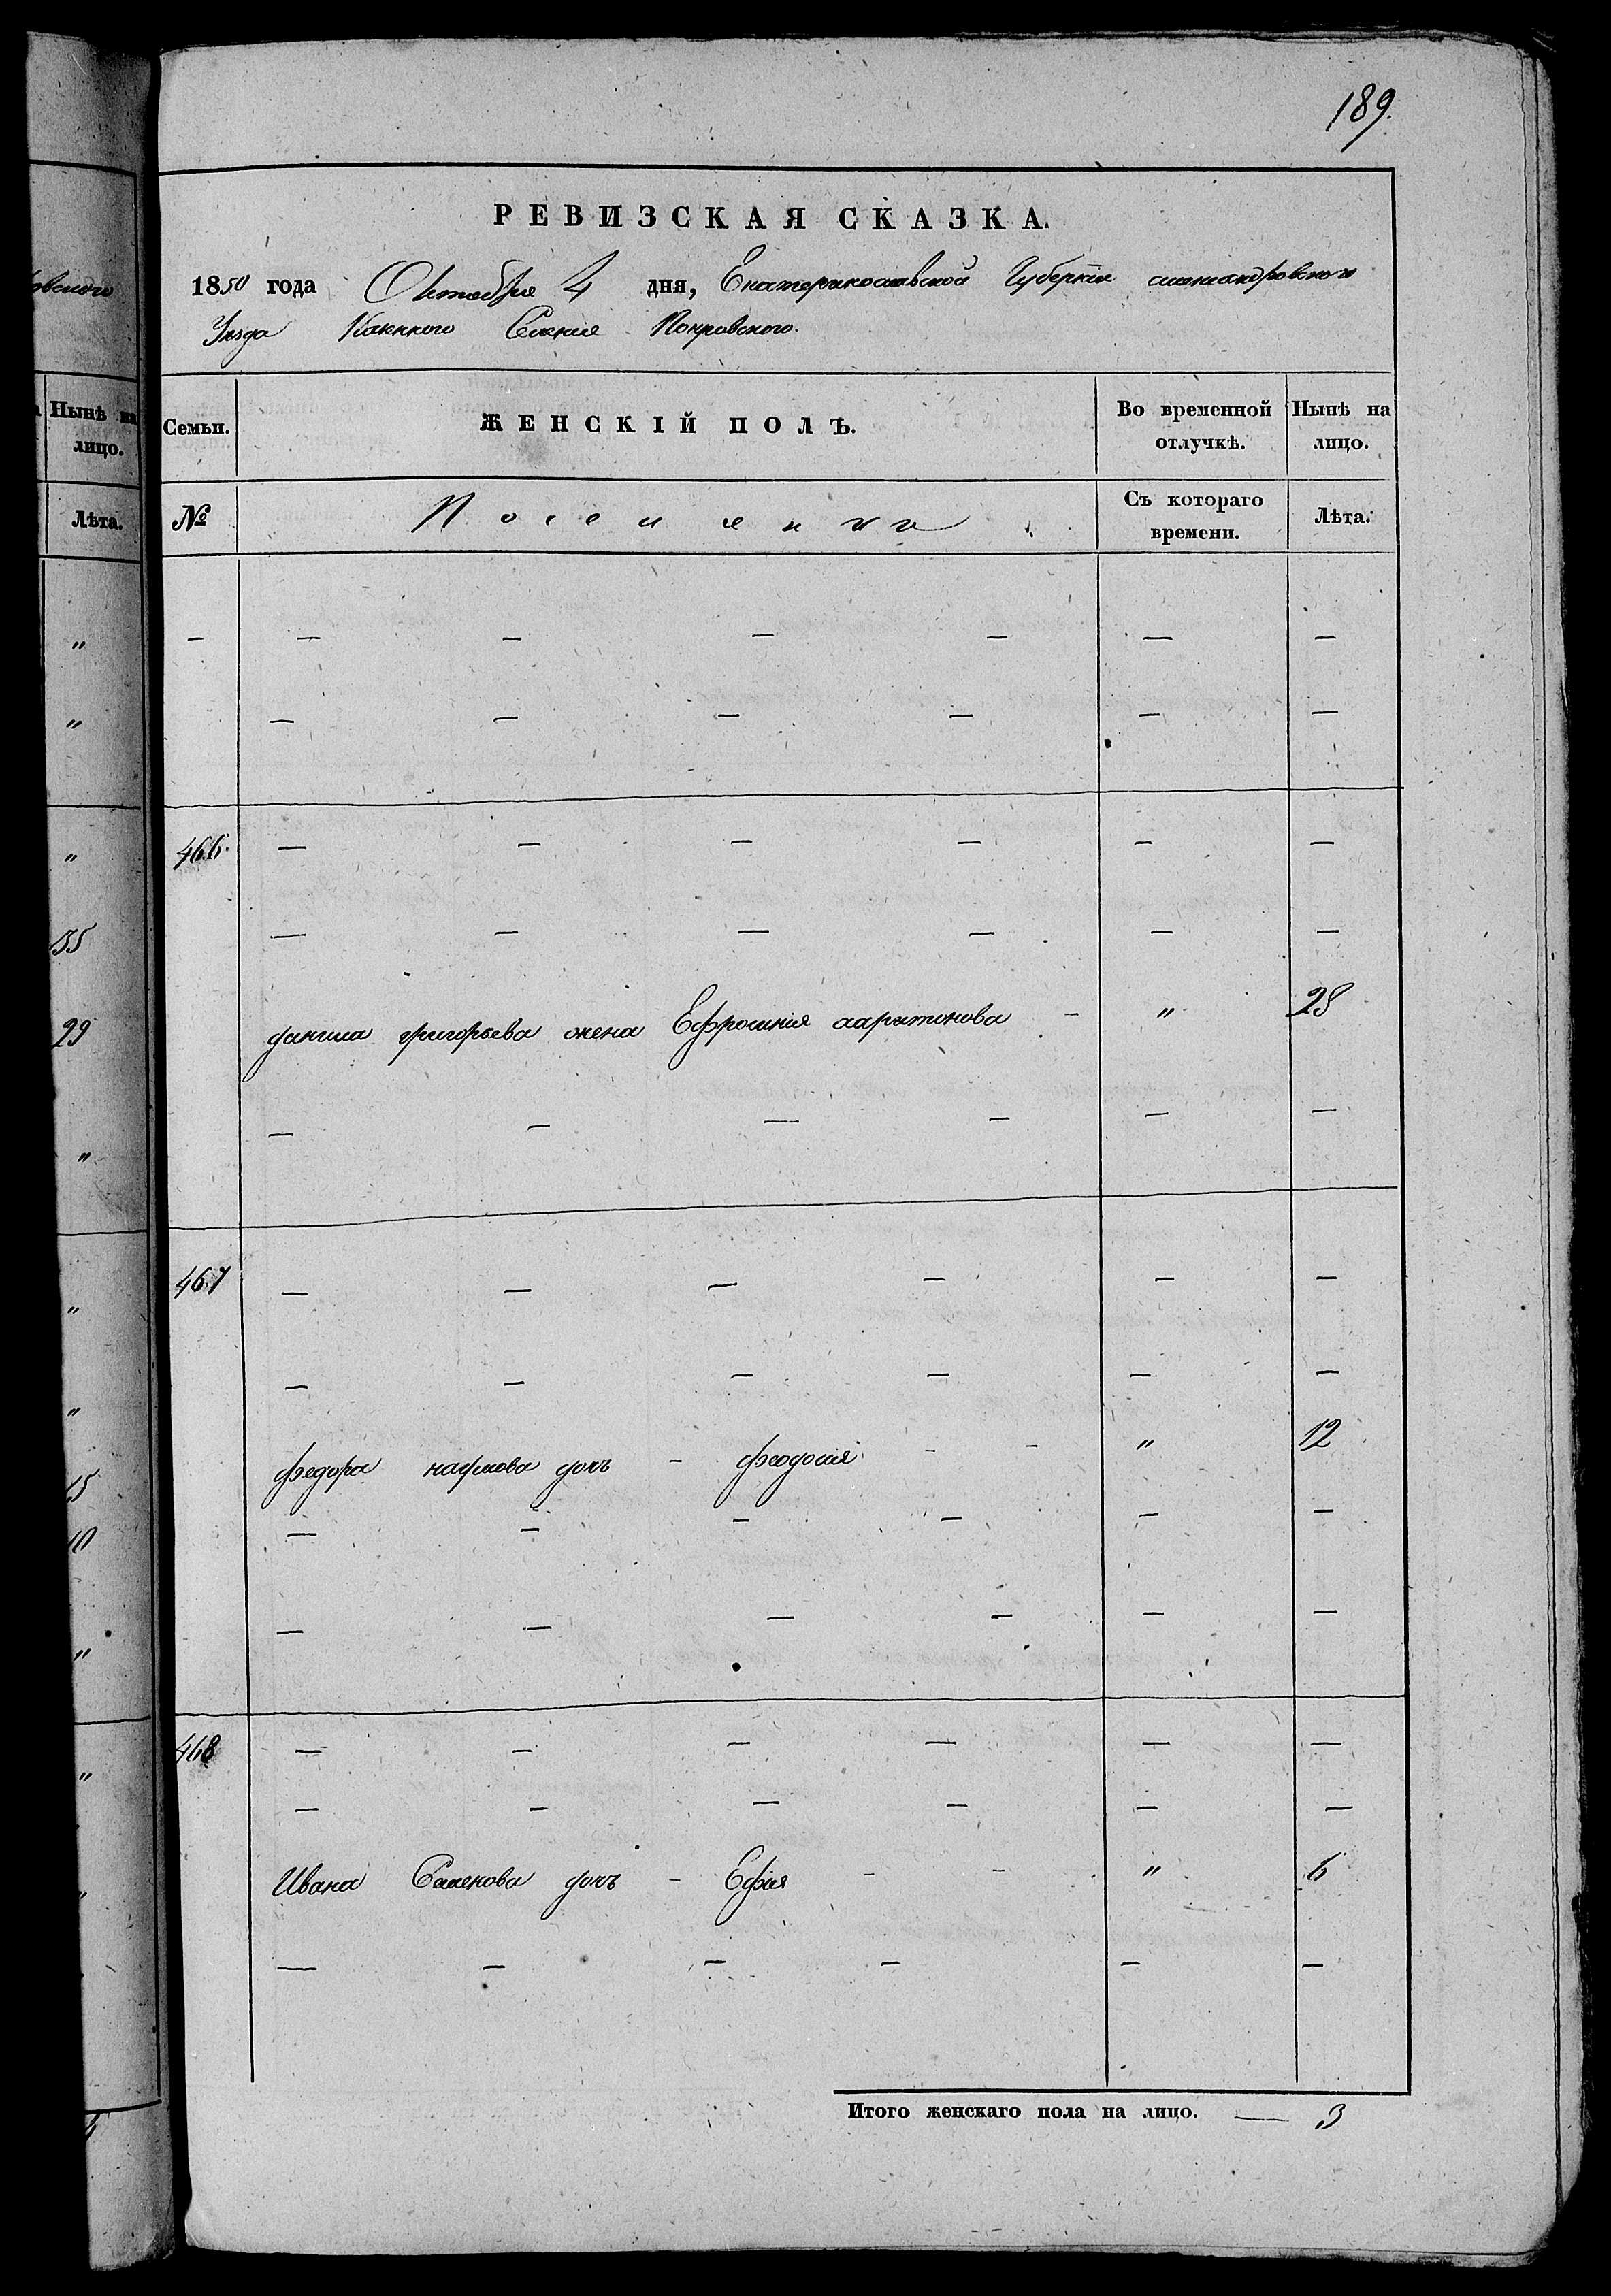 189.
РЕВИЗСКАЯ СКАЗКА.
1850 года Октября 4 дня, Екатеринославской Губерніи александровского
Уезда Казенного Селенія Покровского.
Семьи. ЖЕНСКІЙ ПОЛЪ. Во временной отлучкѣ. Нынѣ на лицо.
№ Поселянки. Съ котораго времени. Лѣта.
— — — — — — —
— — — — — —
466. — — — — — —
— — — — — —
данила григорьева жена Ефросинія харитонова - " 28
— — — — — —
467 — — — — — —
— — — — — —
федора наумова дочь - феодосія - - " 12
— — — — — —
— — — — — —
468 — — — — — —
— — — — — —
Ивана Семенова дочь - Ефия - - " 6
— — — — — —
Итого женскаго пола на лицо. — 3
овского
Нынѣ на
лицо.
Лѣта.
"
"
"
35
29
"
"
"
15
10
"
"
"